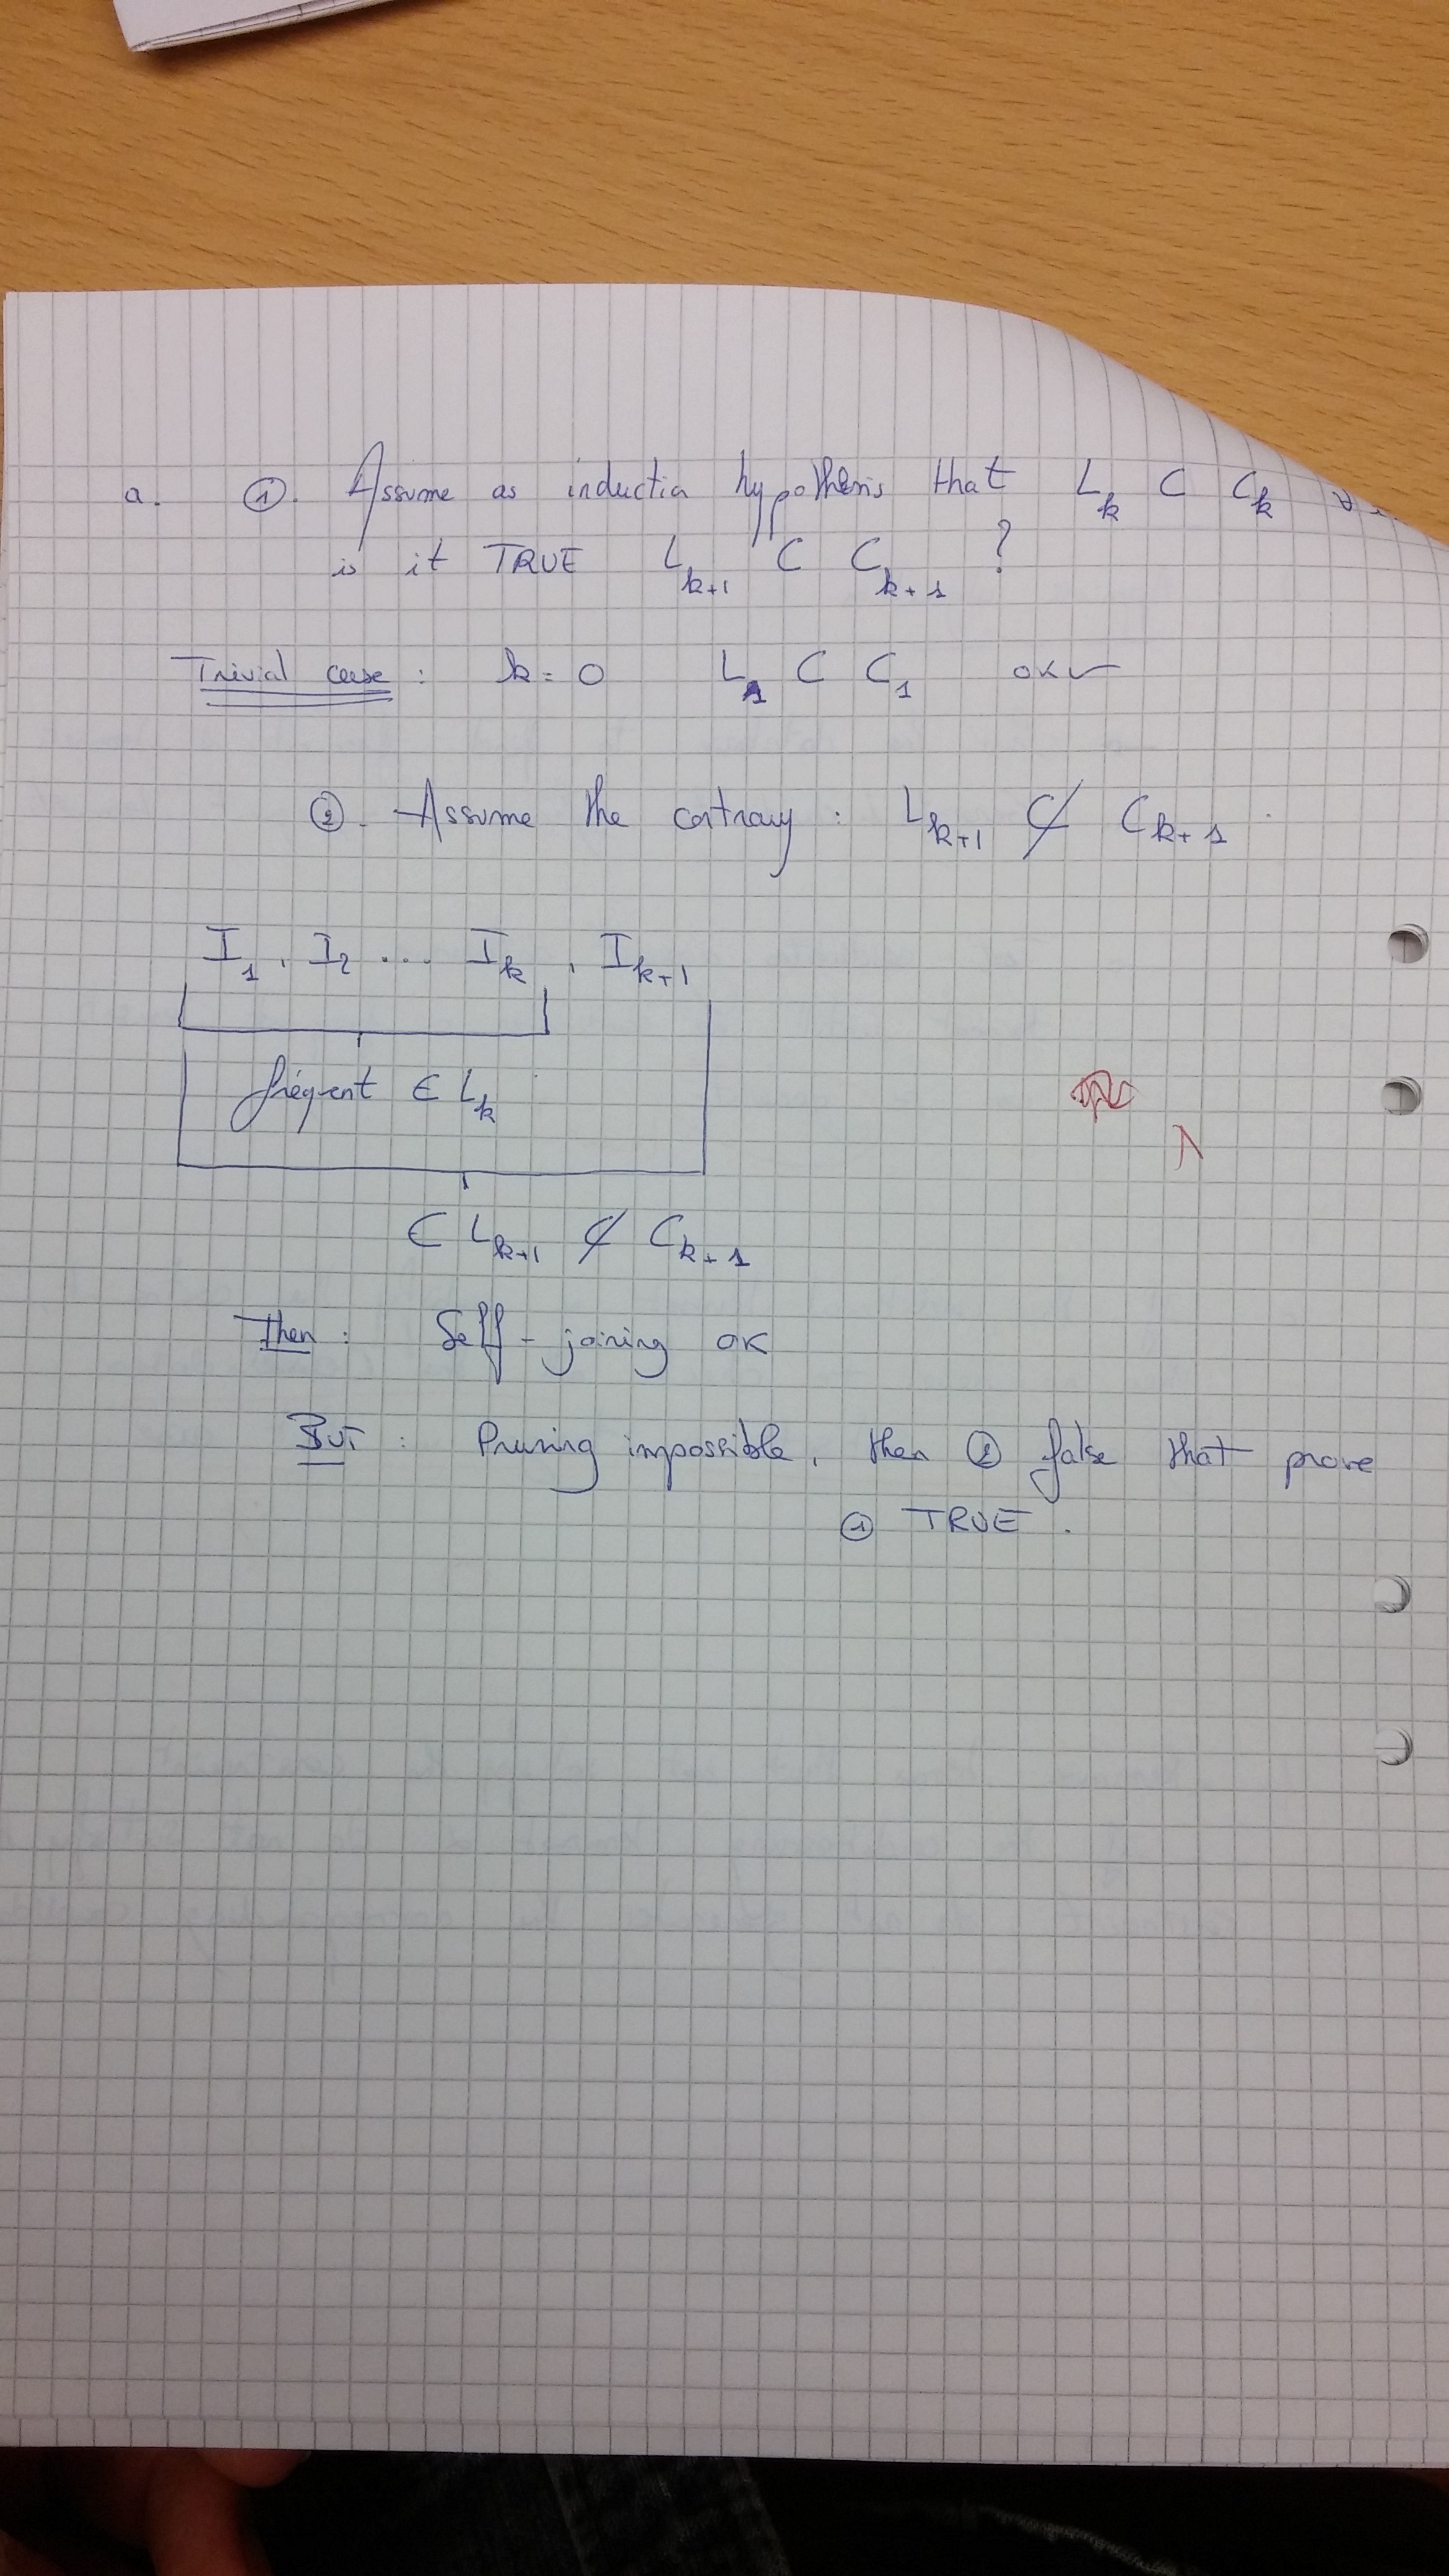 a. ①. Assume as induction hypothesis that L_k ⊂ C_k
is it TRUE L_{k+1} ⊂ C_{k+1} ?
Trivial case : k = 0 L_1 ⊂ C_1 OK
②. Assume the contrary : L_{k+1} ⊄ C_{k+1}
I_1, I_2 ... I_k, I_{k+1}
fréquent ∈ L_k
∈ L_{k+1} ⊄ C_{k+1}
Then : Self-joining OK
BUT : Pruning impossible, then ② false that prove
① TRUE.